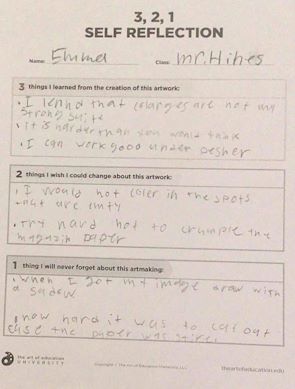 3, 2, 1
SELF REFLECTION
Name: Emma Class: Mr. Hines
3 things I learned from the creation of this artwork:
• I lernd that colarges are not my
strong suite
• it is harder than you would think
• I can work good under pesher
2 things I wish I could change about this artwork:
• I would not coler in the spots
that are emty
• Try hard not to crumple the
magazin paper
1 thing I will never forget about this artmaking:
• when I got my image draw with
a
how hard it was to cut out
the paper was
the art of education
UNIVERSITY
Copyright © The Art of Education University, LLC
theartofeducation.edu